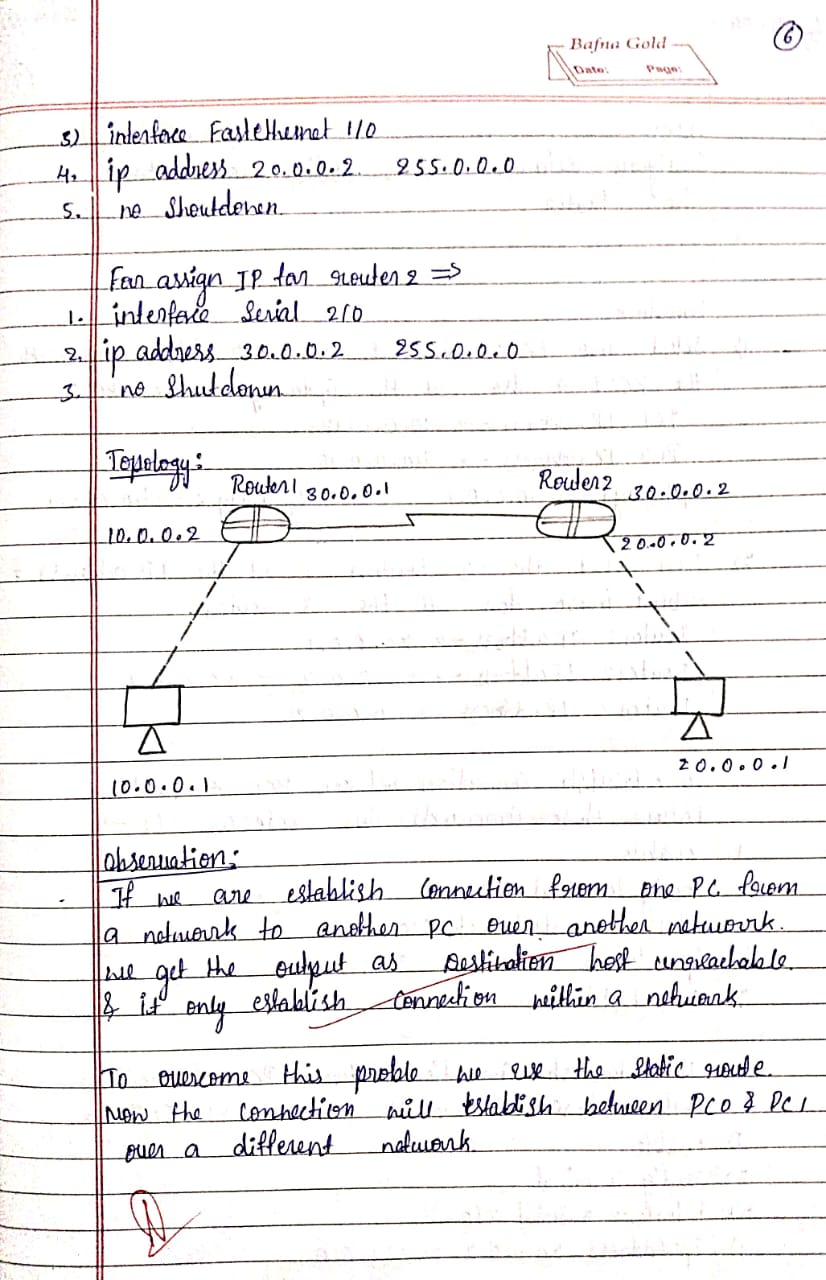 6
Bafna Gold
Date: Page:
3) interface Fastethernet 1/0
4. ip address 20.0.0.2. 255.0.0.0
5. no Shoutdonen
For assign IP for router 2 =>
1. interface Serial 2/0
2. ip address 30.0.0.2 255.0.0.0
3. no Shutdown
Topology:
Router1 30.0.0.1 Router2 30.0.0.2
10.0.0.2 20.0.0.2
20.0.0.1
10.0.0.1
observation:
If we are establish Connection from one PC from
a network to another PC over another network.
we get the output as Destination host unreachable.
& it only establish Connection within a network
To overcome this proble we use the Static route.
Now the connection will Establish between PC0 & PC1
over a different network.